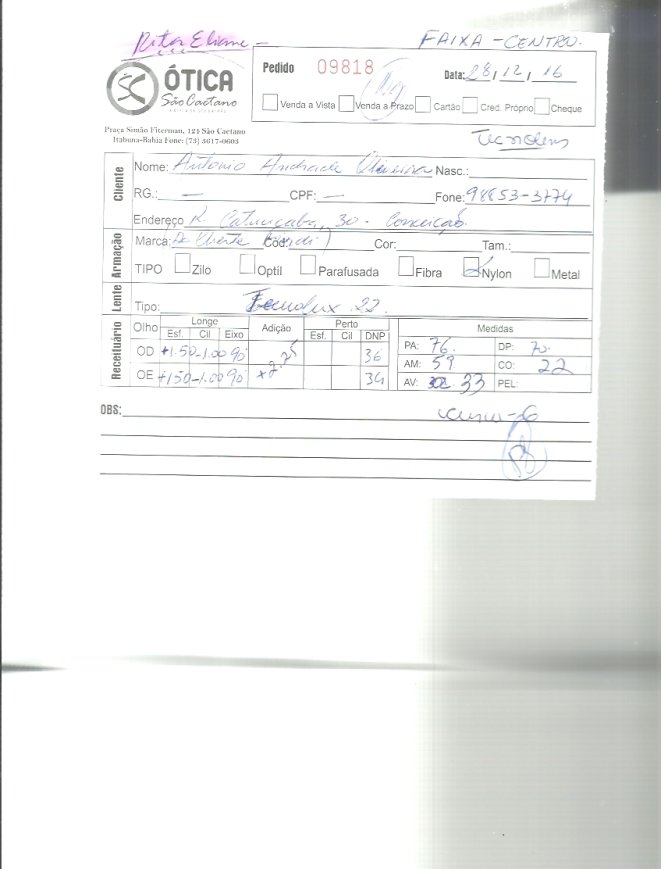 Rita Eliane -
FAIXA - CENTRO.
ÓTICA
São Caetano
Praça Simão Fiterman, 124 São Caetano
Itabuna-Bahia Fone: (73) 3617-0603
Pedido 09818 Data: 28, 12, 16
Venda a Vista Venda a Prazo Cartão Cred. Próprio Cheque
Tecnolens
Cliente
Nome: Antonio Andrade Oliveira Nasc.:
RG.: — CPF: — Fone: 98853-3774
Endereço R. Catuiçaba, 30 - Conceição
Armação
Marca: Do Cliente Cód: Cor: Tam.:
TIPO Zilo Optil Parafusada Fibra Nylon Metal
Lente
Tipo: Tecnolux 22.
Receituário
Olho Longe Adição Perto Medidas
Esf. Cil Eixo Esf. Cil DNP
OD +1.50 -1.00 90 +2.25 36
OE +150 -1.00 90 34
PA: 76. DP: 70.
AM: 59 CO: 22
AV: 33 PEL:
OBS: